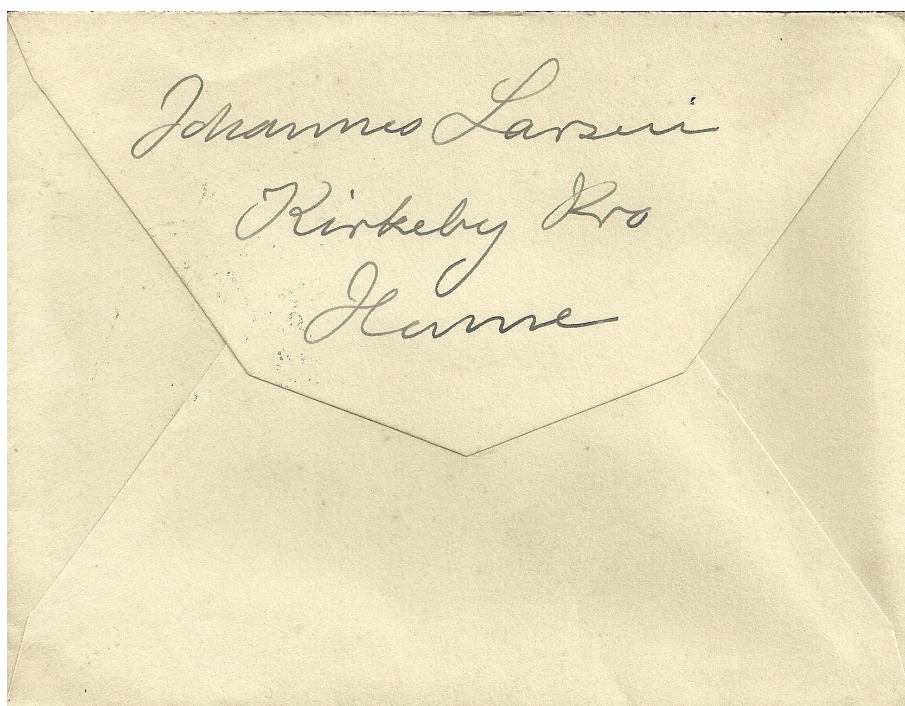 Johannes Larsen
Kirkeby Kro
Henne